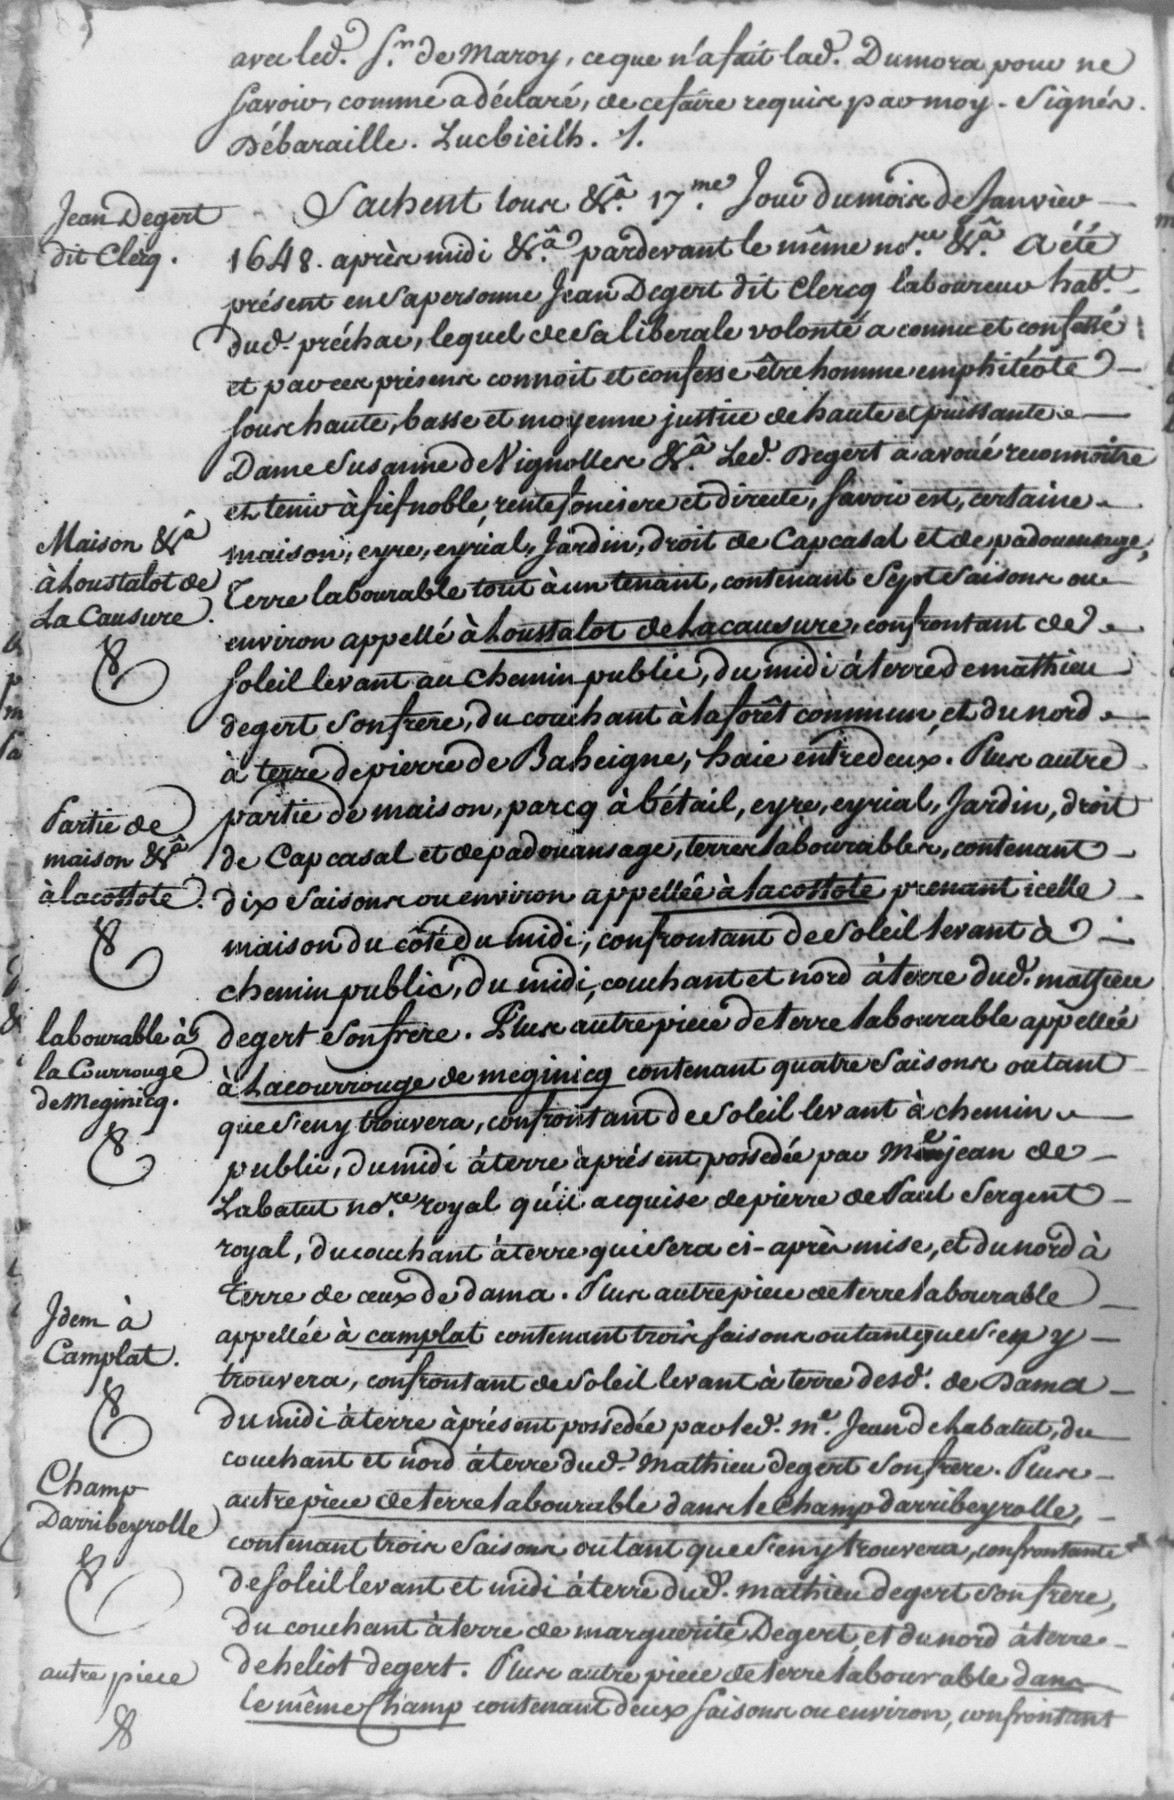 avec led. Sr. de Maroy, ce que n'a fait lad. Dumora pour ne
savoir, comme a déclaré, de ce faire requise par moy. Signés.
Débaraille. Lucbieilh. /.
Jean Degert
dit Clercq.
Sachent tous &a. 17.me Jour du mois de Janvier
1648. après midi &a. pardevant le même no.re &a. A été
présent en sa personne Jean Degert dit Clercq laboureur hab.t
dud. préchac, lequel de sa liberale volonté a connu et confessé
et par ces présens connoit et confesse être homme emphitéote
sous haute, basse et moyenne justice de haute et puissante
Dame Susanne de Vignolles &a. Led. Degert a avoué reconnoitre
et tenir à fief noble, rente fonciere et directe, savoir est, certaine
Maison &a
à Loustalot de
La Causure.
maison, eyre, eyrial, Jardin, droit de Capcasal et de padouensage,
Terre labourable tout à un tenant, contenant Sept Saisons ou
environ appellé à Loustalot de Lacausure, confrontant de
soleil levant au chemin public, du midi à terre de mathieu
degert son frère, du couchant à la forêt commun, et du nord
à terre de pierre de Baheigne, haie entredeux. Plus autre
Partie de
maison &a
à lacostote.
partie de maison, parcq à bétail, eyre, eyrial, Jardin, droit
de Capcasal et de padouansage, terres labourables, contenant
dix Saisons ou environ appellée à lacostote prenant icelle
maison du côté du midi, confrontant de Soleil levant à
chemin public, du midi, couchant et nord à terre dud. mathieu
labourable à
la Courrouge
de Meginicq.
degert son frère. Plus autre piece de terre labourable appellée
à Lacourrouge de meginicq contenant quatre Saisons ou tant
que s'en y trouvera, confrontant de Soleil levant à chemin
public, du midi à terre à présent possedée par Me jean de
Labatut no.re royal qu'il acquise de pierre de Paul Sergent
royal, du couchant à terre qui sera ci-après mise, et du nord à
terre de ceux de dama. Plus autre piece de terre labourable
Idem à
Camplat.
appellée à camplat contenant trois saisons ou tant que s'en y
trouvera, confrontant de soleil levant à terre desd. de Dama
du midi à terre à présent possedée par led. me. Jean de Labatut, du
couchant et nord à terre dud. Mathieu degert son frère. Plus
Champ
Darribeyrolle
autre piece de terre labourable dans le champ darribeyrolle,
contenant trois Saisons ou tant que s'en y trouvera, confrontante
de soleil levant et midi à terre dud. mathieu degert son frere,
du couchant à terre de marguerite Degert, et du nord à terre
autre piece
de heliot degert. Plus autre piece de terre labourable dans
le même Champ contenant deux saisons ou environ, confrontant